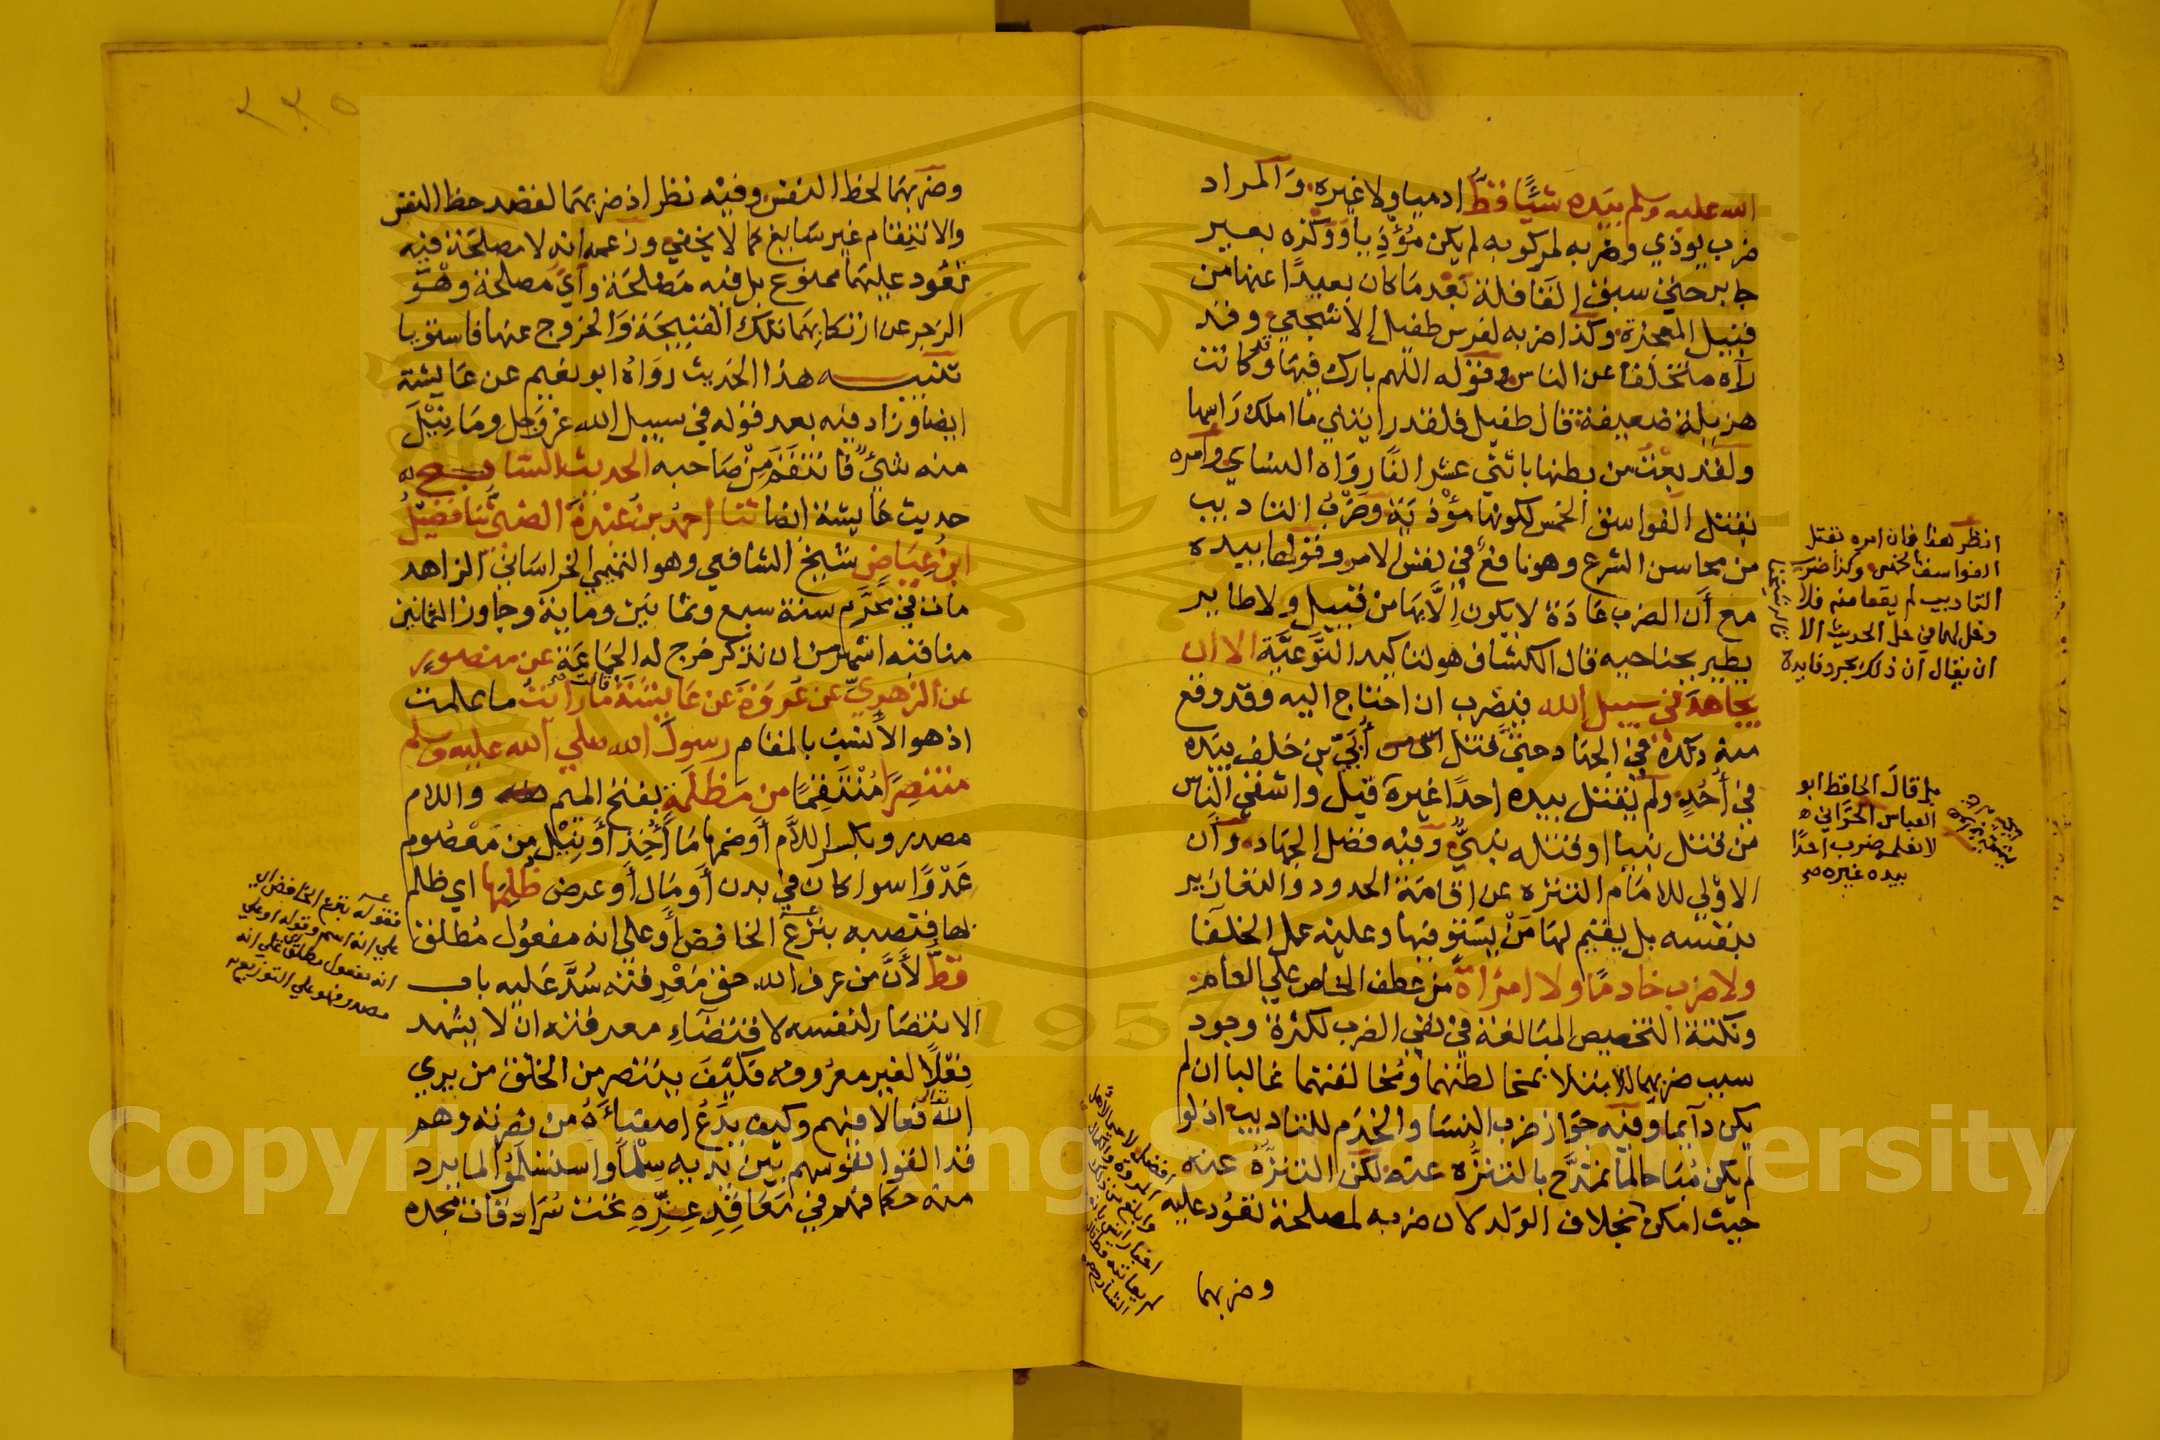 الله عليه وسلم بيده شيًا قط ادميا ولا غيره والمراد
ضرب يوذي وضربه لمركوبه لم يكن مؤذيا ووكزه بعير
جابر حتي سبق القافلة بعد ما كان بعيدا عنها من
قبيل المعجزة وكذا ضربه لفرس طفيل الاشجعي وقد
رآه متخلفا عن الناس وقوله اللهم بارك فيها وقد كانت
هزيلة ضعيفة قال طفيل فلقد رايتني ما املك راسها
ولقد بعت من بطنها باثني عشر الفا رواه النساي وامره
بقتل الفواسق الخمس لكونها مؤذية وضرب التاديب
من محاسن الشرع وهو نافع في نفس الامر وقولها بيده
مع أن الضرب عادة لا يكون إلا بها من قبيل ولا طاير
يطير بجناحيه قال الكشاف هو لتاكيد النوعية الا ان
يجاهد في سبيل الله فيضرب ان احتاج اليه وقد وقع
منه ذلك في الجهاد حتي قتل أبي بن خلف بيده
في أحد ولم يقتل بيده احدا غيره قيل واشقي الناس
من قتل نبيا او قتله نبي وفيه فضل الجهاد وان
الاولي للامام التنزه عن اقامة الحدود والتعازير
بنفسه بل يقيم لها من يستوفيها وعليه عمل الخلفا
ولا ضرب خادما ولا امرأة من عطف الخاص علي العام
ونكتة التخصيص المبالغة في نفي الضرب لكثرة وجود
سبب ضربهما للابتلا بمخالطتهما ومخالفتهما غالبا ان لم
يكن دايما وفيه جواز ضرب النسا والخدم للتاديب اذ لو
لم يكن مباحا لما تمدح بالتنزه عنه لكن التنزه عنه
حيث امكن بخلاف الولد لان ضربه لمصلحة تعود عليه
وضربهما
انظر هذا فان امره بقتل
الفواسق الخمس وكذا ضرب
التاديب لم يقعا منه فلا
دخل لهما في حل الحديث الا
ان يقال ان ذلك مجرد فايدة
بل قال الحافظ ابو
العباس الحراني
لا نعلمه ضرب احدا
بيده غيره صح
وضربهما لحظ النفس وفيه نظر اذ ضربهما لقصد حظ النفس
والانتقام غير سايغ كما لا يخفي وزعمه انه لا مصلحة فيه
تعود عليهما ممنوع بل فيه مصلحة وأي مصلحة وهو
الزجر عن ارتكابهما تلك القبيحة والخروج عنها فاستويا
تنبيه هذا الحديث رواه ابو نعيم عن عايشة
ايضا وزاد فيه بعد قوله في سبيل الله عز وجل وما نيل
منه شيء فانتقم من صاحبه الحديث السابع
حديث عايشة ايضا ثنا احمد بن عبدة الضبي ثنا فضيل
ابن عياض شيخ الشافعي وهو التميمي الخراساني الزاهد
مات في محرم سنة سبع وثمانين وماية وجاوز الثمانين
مناقبه اشهر من ان تذكر خرج له الجماعة عن منصور
عن الزهري عن عروة عن عايشة قالت ما رأيت ما علمت
اذ هو الأنسب بالمقام رسول الله صلي الله عليه وسلم
منتصرا منتقما من مظلمة بفتح الميم واللام
مصدر وبكسر اللام أو ضمها ما أخذ أو نيل من معصوم
عدوا سوا كان في بدن أو مال أو عرض ظلمها اي ظلم
بها فتصبه بنزع الخافض أو علي انه مفعول مطلق
قط لأن من عرف الله حق معرفته سد عليه باب
الانتصار لنفسه لاقتضاء معرفته ان لا يشهد
فعلا لغير معروفه فكيف ينتصر من الخلق من يري
الله فعالا فيهم وكيف يدع اصفياءه من نصرته وهم
قد القوا نفوسهم بين يديه سلما واستسلموا لما يرد
منه حكما فهم في معاقد عزه تحت سرادقات مجده
فقوله بنزع الخافض اي
علي انه اسم وقوله او علي
انه مفعول مطلق علي انه
مصدر فهو علي التوزيع